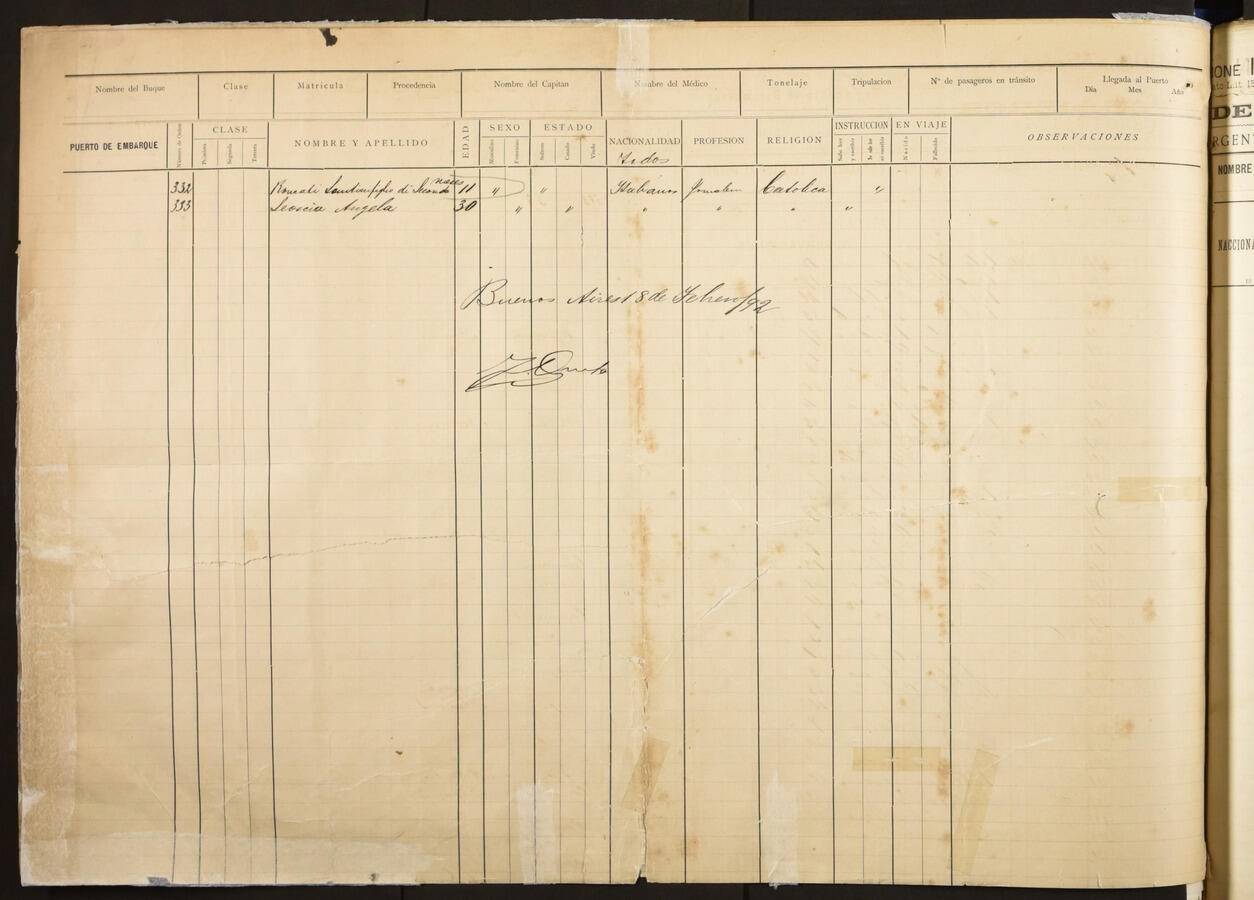 Nombre del Buque Clase Matricula Procedencia Nombre del Capitan Nombre del Médico Tonelaje Tripulacion Nº de pasageros en tránsito Llegada al Puerto
Dia Mes Año
PUERTO DE EMBARQUE Número de Orden CLASE NOMBRE Y APELLIDO EDAD SEXO ESTADO NACIONALIDAD PROFESION RELIGIÓN INSTRUCCION EN VIAJE OBSERVACIONES
Primera Segunda Tercera Masculino Femenino Soltero Casado Viudo Sabe leer y escribir No sabe leer ni escribir Nacido Fallecido
Todos
meses
332 Roncati figlio di 11 " " Italianos Jornalero Católica "
333 Scoscia Angela 30 " " " " " "
Buenos Aires 18 de Febrero/92
ONE
DE
RGEN
NOMBRE
NACCIONA